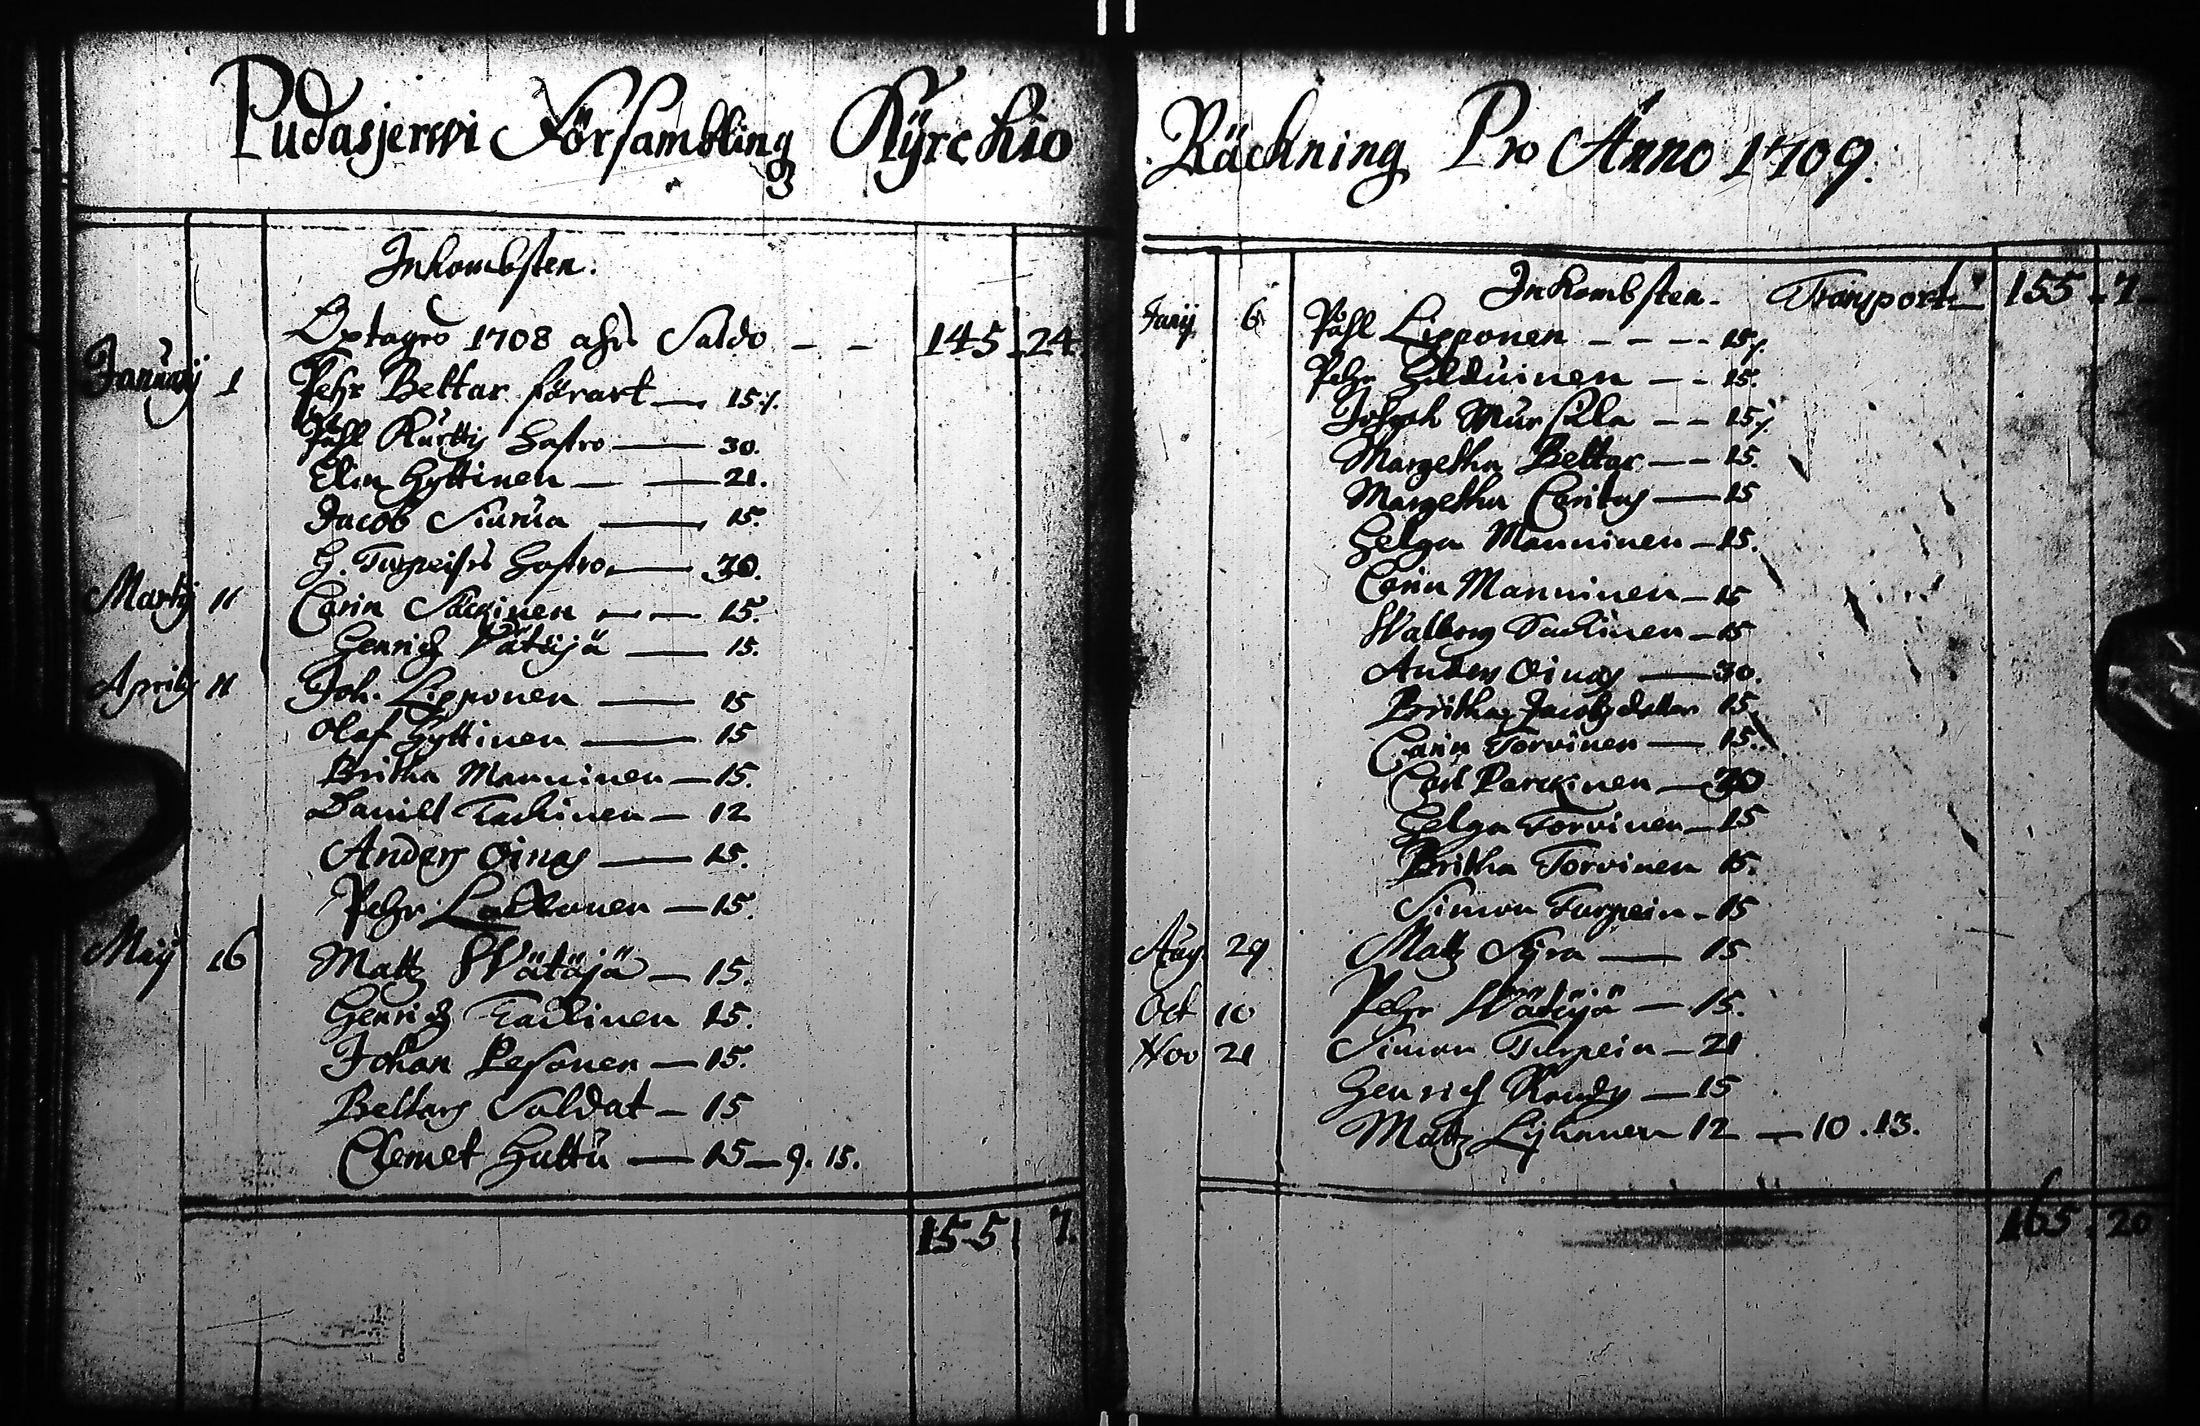 Pudasjerwi Försambling Kyrchio
Inkombsten.
Optages 1708 ahrs Saldo — — 145 . 24
January 1 Pehr Beltar förart — 15 ./.
Påhl Kurttis Hustro — 30.
Elin Hyttinen — — 21.
Jacob Siurua — 15.
H. Turpeises Hustro — 30.
Marty 11 Carin Säckinen — — 15.
Henrich Wätäjä — 15.
Aprilis 11 Joh. Lipponen — 15
Olaf Hyttinen — 15
Britha Manninen — 15.
Daniel Tackinen — 12
Anders Oinas — 15.
Pehr — 15.
Maij 16 Matts Wätäjä — 15.
Henrich Tackinen 15.
Johan Pesonen — 15.
Beltars Soldat — 15
Clemet Huttu — 15 — 9. 15.
155 | 7.
Räckning Pro Anno 1709.
Inkombsten. Transport — 155 . 7
6 Påhl Lipponen — — — 15 ./.
Pehr — — 15.
Joseph Mursula — — 15 ./.
Margetha Beltar — — 15.
Margetha — 15
Helga Manninen — 15.
Carin Manninen — 15
Walborg Tackinen — 15
Anders Oinas — 30.
Britha Jacobsdotter 15
Carin Torvinen — 15.
Carl Parckinen — 30
Helga Torvinen — 15
Britha Torvinen 15.
Simon Turpein — 15
Aug 29 Matts Syra — 15
Oct 10 Pehr Wätäjä — 15.
Nov 21 Simon Turpein — 21
Henrich — 15
Matts Lyhanen 12 — 10 . 13.
165 . 20